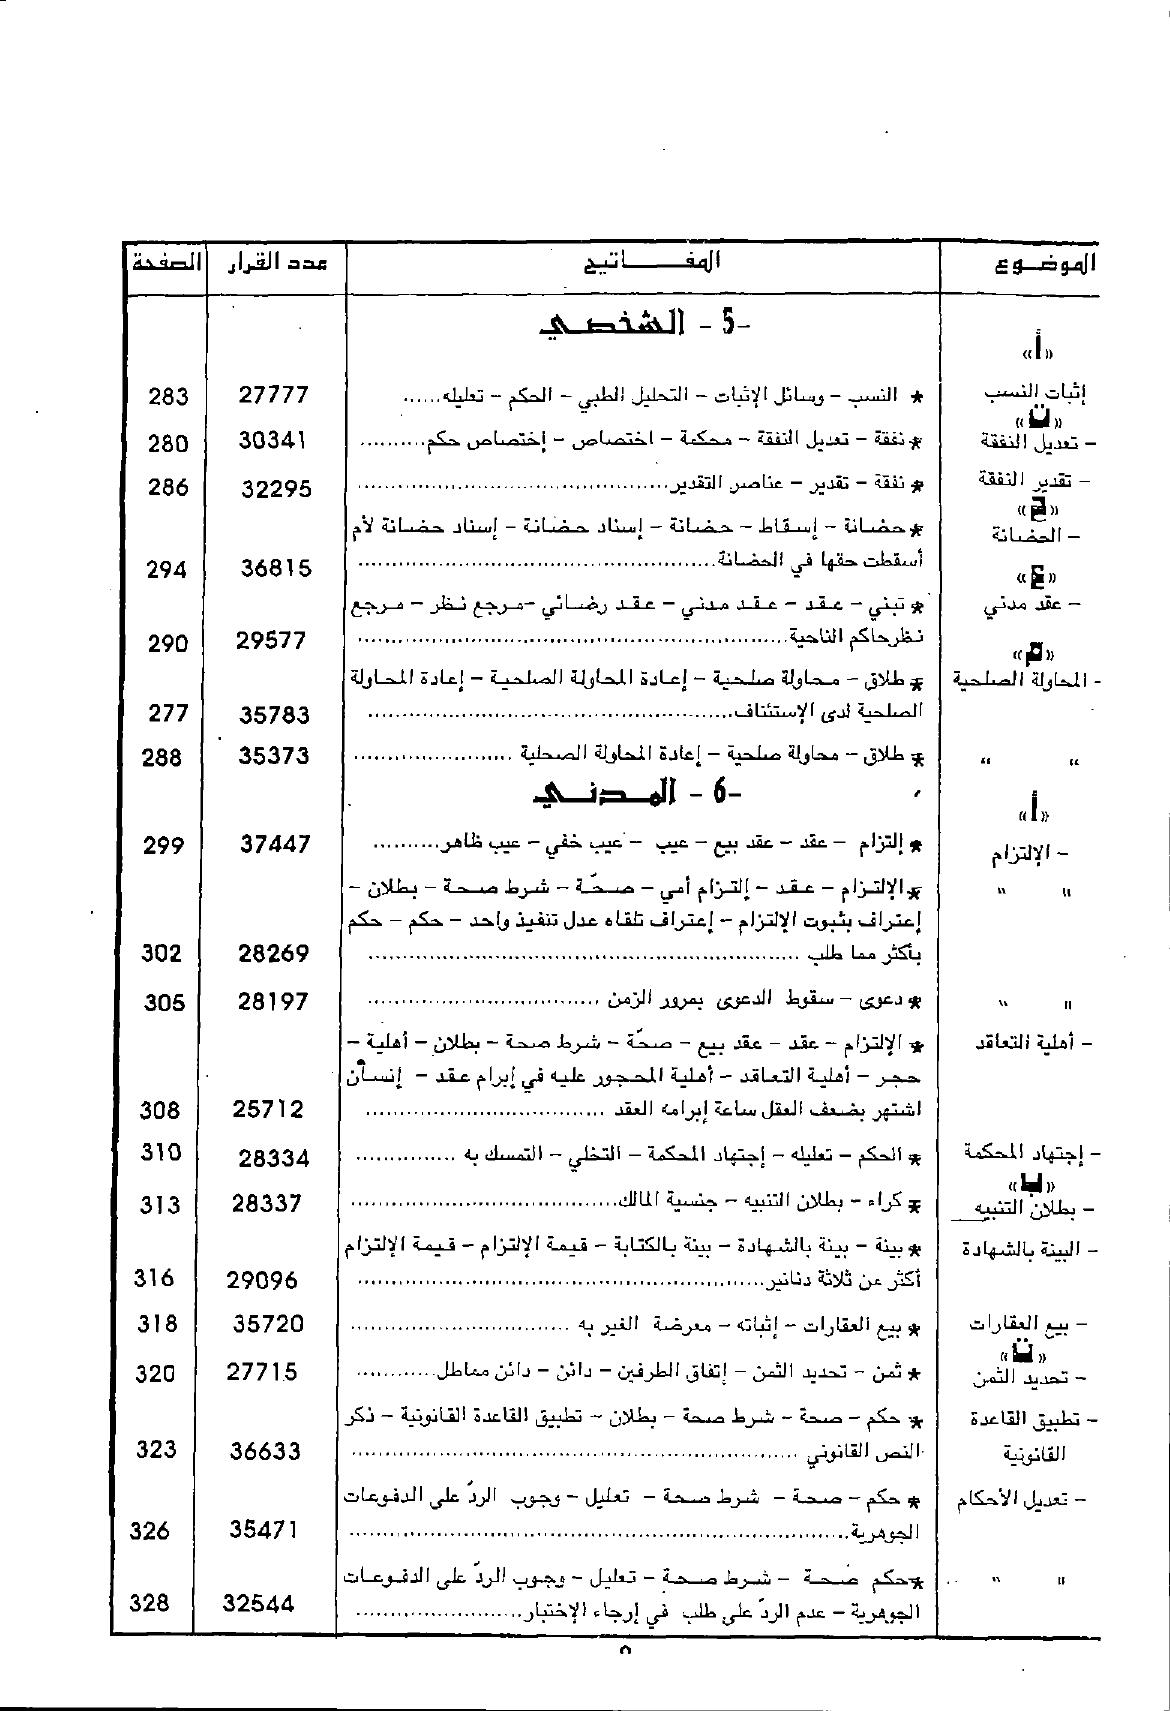 الموضوع المفاتيح عدد القرار الصفحة
-5- الشخصي
«أ»
إثبات النسب * النسب - وسائل الإثبات - التحليل الطبي - الحكم - تعليله...... 27777 283
«ت»
- تعديل النفقة * نفقة - تعديل النفقة - محكمة - اختصاص - إختصاص حكم.......... 30341 280
- تقدير النفقة * نفقة - تقدير - عناصر التقدير............................................... 32295 286
«ح»
- الحضانة * حضانة - إسقاط - حضانة - إسناد حضانة - إسناد حضانة لأم
أسقطت حقها في الحضانة..................................................... 36815 294
«ع»
- عقد مدني * تبني - عقد - عقد مدني - عقد رضائي -مرجع نظر - مرجع
نظر حاكم الناحية................................................................ 29577 290
«م»
- المحاولة الصلحية * طلاق - محاولة صلحية - إعادة المحاولة الصلحية - إعادة المحاولة
الصلحية لدى الإستئناف...................................................... 35783 277
" " * طلاق - محاولة صلحية - إعادة المحاولة الصحلية ........................ 35373 288
-6- المدني
«أ»
- الإلتزام * إلتزام - عقد - عقد بيع - عيب - عيب خفي - عيب ظاهر.......... 37447 299
" " * الإلتزام - عقد - إلتزام أمي - صحّة - شرط صحة - بطلان -
إعتراف بثبوت الإلتزام - إعتراف تلقاه عدل تنفيذ واحد - حكم - حكم
بأكثر مما طلب ................................................................ 28269 302
" " * دعوى - سقوط الدعوى بمرور الزمن ................................... 28197 305
- أهلية التعاقد * الإلتزام - عقد - عقد بيع - صحّة - شرط صحة - بطلان - أهلية -
حجر - أهلية التعاقد - أهلية المحجور عليه في إبرام عقد - إنسان
اشتهر بضعف العقل ساعة إبرامه العقد .................................... 25712 308
- إجتهاد المحكمة * الحكم - تعليله - إجتهاد المحكمة - التخلي - التمسك به ............... 28334 310
«ب»
- بطلان التنبيه * كراء - بطلان التنبيه - جنسية المالك....................................... 28337 313
- البينة بالشهادة * بينة - بينة بالشهادة - بينة بالكتابة - قيمة الإلتزام - قيمة الإلتزام
أكثر عن ثلاثة دنانير............................................................ 29096 316
- بيع العقارات * بيع العقارات - إثباته - معرضة الغير به ................................. 35720 318
«ت»
- تحديد الثمن * ثمن - تحديد الثمن - إتفاق الطرفين - دائن - دائن مماطل............ 27715 320
- تطبيق القاعدة * حكم - صحة - شرط صحة - بطلان - تطبيق القاعدة القانونية - ذكر
القانونية النص القانوني .................................................................. 36633 323
- تعديل الأحكام * حكم - صحة - شرط صحة - تعليل - وجوب الردّ على الدفوعات
الجوهرية.......................................................................... 35471 326
" " * حكم صحة - شرط صحة - تعليل - وجوب الردّ على الدفوعات
الجوهرية - عدم الردّ على طلب في إرجاء الإختبار......................... 32544 328
٥